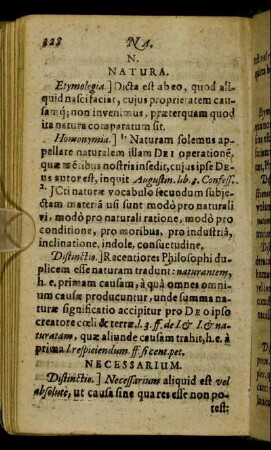 328 NA.
N.
NATURA.
Etymologia.] Dicta est ab eo, quod ali-
quid nasci faciat, cujus proprietatem cau-
samq́; non invenimus, præterquam quod
ita natura comparatum sit.
Homonymia.] 1. Naturam solemus ap-
pellare naturalem illam DEI operationē,
quæ mēbris nostris insedit, cujus ipse De-
us autor est, inquit Augustin. lib. 4. Confess.
2. JCti naturæ vocabulo secundum subje-
ctam materiā usi sunt modò pro naturali
vi, modò pro naturali ratione, modò pro
conditione, pro moribus, pro industriā,
inclinatione, indole, consuetudine,
Distinctio.] Recentiores Philosophi du-
plicem esse naturam tradunt: naturantem,
h. e. primam causam, à quâ omnes omnium
causæ producuntur, unde summa natu-
ræ significatio accipitur pro DEO ipso
creatore cœli & terræ l. 3. ff. de I. & I. & na-
turatam, quæ aliunde causam trahit, h. e. à
prima l. respiciendum. ff. si cent. pet.
NECESSARIUM.
Distinctio.] Necessarium aliquid est vel
absolutè, ut causa sine qua res esse non po-
test: